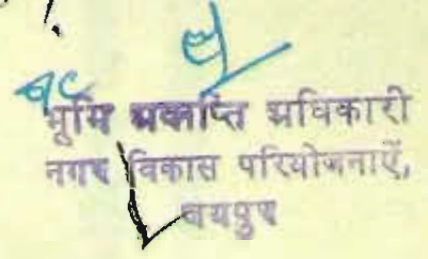 भूमि अवाप्ति अधिकारी
नगर विकास परियोजनाएँ,
जयपुर